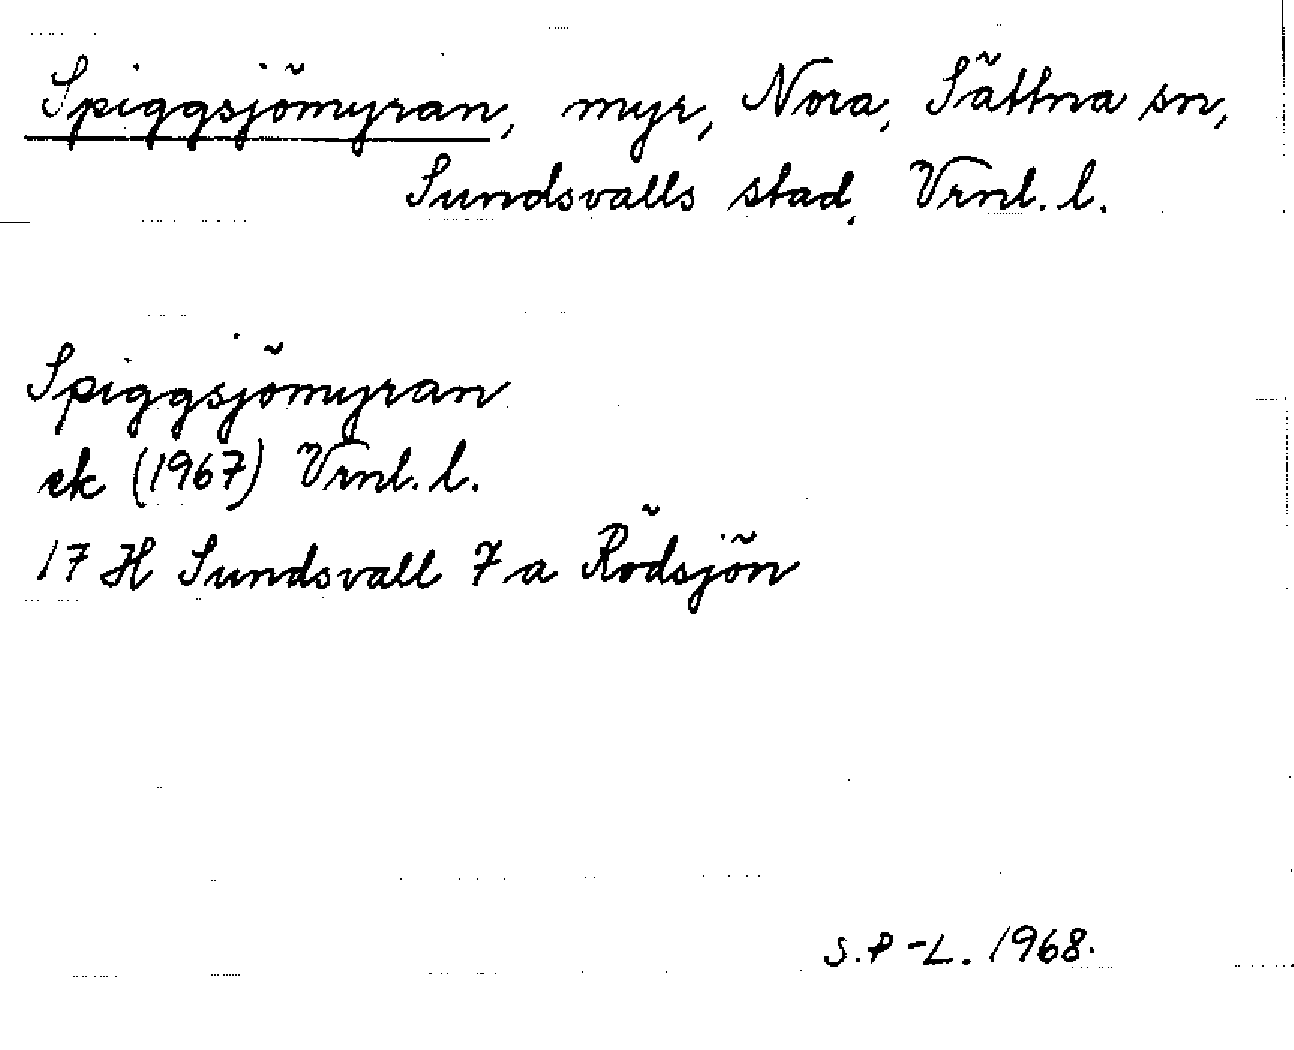 Spiggsjömyran, myr, Nora, Sättna sn,
Sundsvalls stad, Vrnl. l.
Spiggsjömyran
ek (1967) Vrnl. l.
17 H Sundsvall 7 a Rödsjön
S.P-L. 1968.